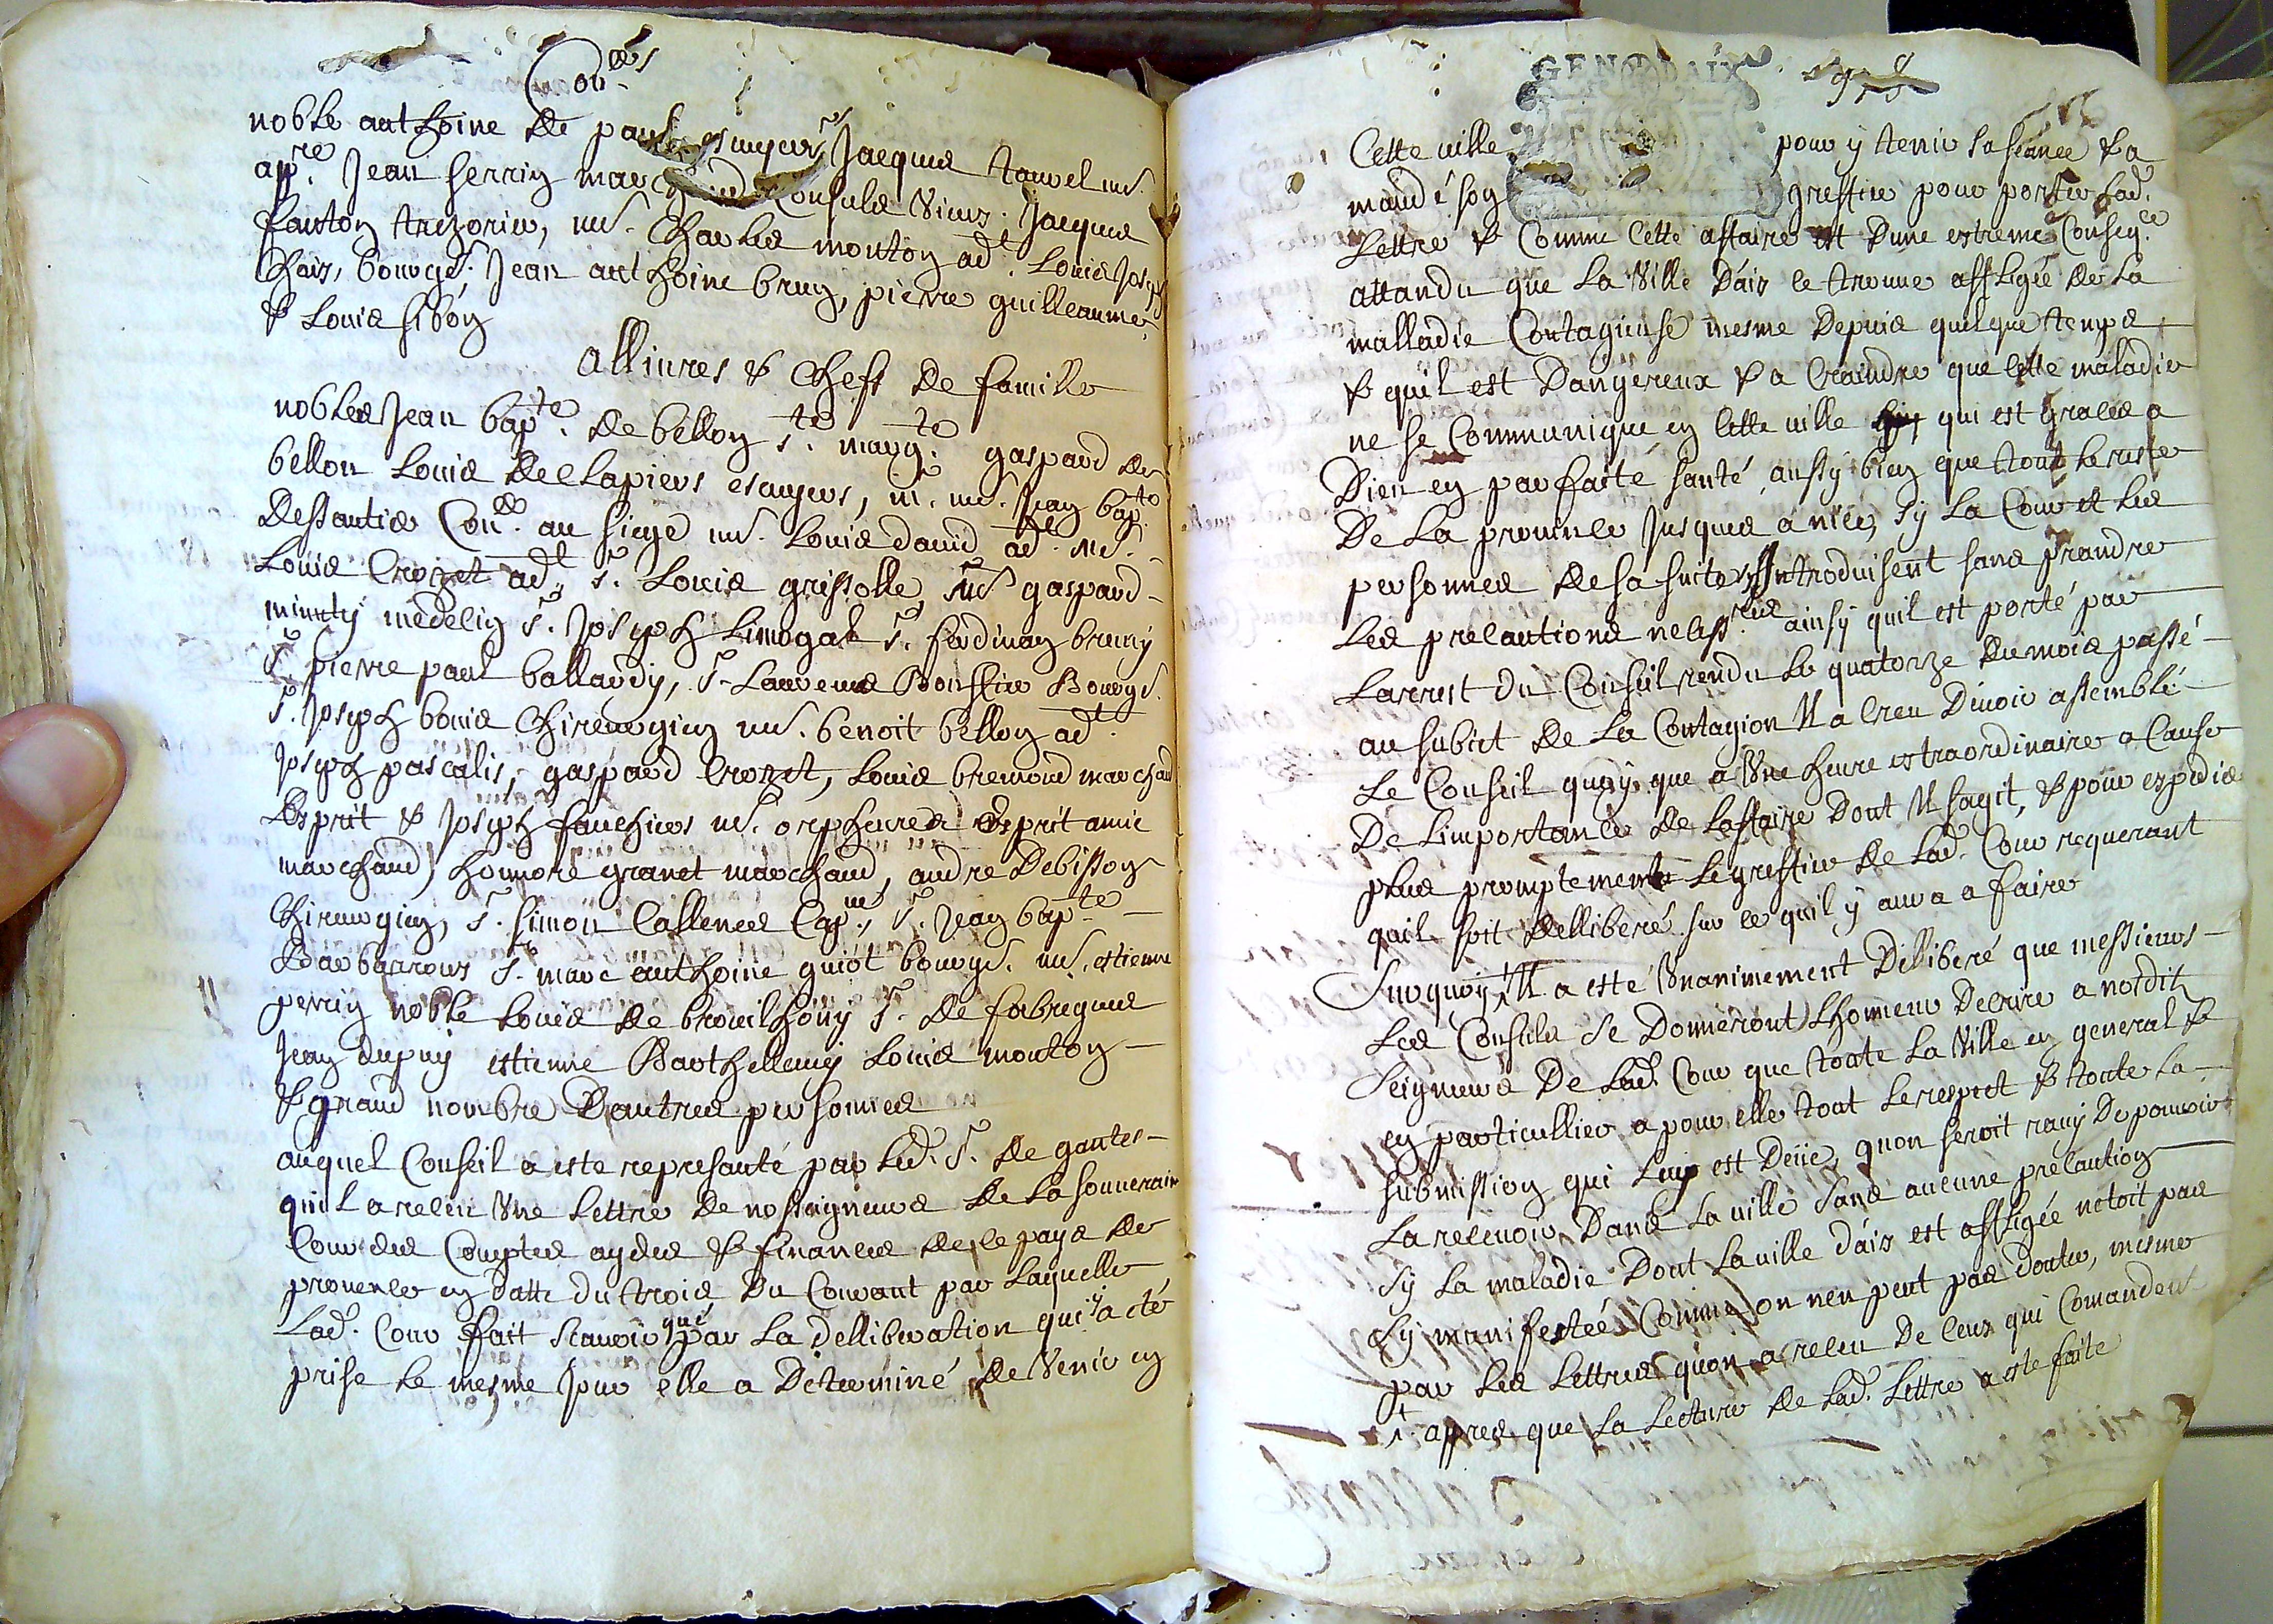 Con.ers
noble anthoine de paul escuyer, Jacques tauvel mre
apre. Jean serrin marchand Consuls vieux. Jacques
fauton trezorier, mre. Charles mouton adt. Louis Joseph
Chaix, bourgs. Jean anthoine brun, pierre guilleaume
& Louis sibon
allivres & Chefs de famille
nobles Jean bapte. de bellon sr. margte. gaspard de
bellon Louis de clapiers escuyers, m. mre. Jean bapte
dessauties Coner. au siege mre. Louis david adt. mre.
Louis Crozet adt, sr. Louis grissolle, mre gaspard
minuty medecin sr. Joseph Limogal sr. ferdinan bruny
sr. pierre paul ballardy, sr. Laurens Bonffier Bourgs.
sr. Joseph bouis Chireurgien mre. benoit bellon adt.
Joseph pascalis, gaspard Crozet, Louis bremond marchand
Esprit & Joseph fauchiers mes. orpheuvres, Esprit amic
marchand, honnore granet marchand, andre Debisson
Chirurgien, sr. simon Callenes Capne, sr. Jean bapte
Barbarroux sr. marc anthoine guiot bourgs. mre. estienne
perrin noble Louis de brouilhony sr. de fabregues
Jean dupuy estienne Barthellemy Louis mouton
& grand nombre dautres personnes
auquel Conseil a este representé par led. sr. de gantes
quil a receu Une Lettre de nosseigneurs de La souveraine
Cour des Comptes aydes & finances de ce pays de
provence en datte du trois du Courant par Laquelle
Lad. Cour fait scavoir que par La delliberation qui y a eté
prise Le mesme Jour elle a Determiné de Venir en
GEN DAIX
978
Cette ville pour y tenir sa séance & a
mandé son greffier pour porter Lad.
Lettre & Comme Cette affaire est dune extreme Conseqce
attandu que La Ville Daix ce trouve affligée de La
malladie Contagieuse mesme Depuis quelque temps
& quil est Dangereux & a Craindre que Cette maladie
ne se Communique en Cette ville qui est graces a
Dieu en parfaite santé aussy bien que tout Le reste
De La province Jusques a nice, sy La Cour et Les
personnes de sa suite sintroduisent sans prandre
Les precautions necessres ainsy quil est porté par
Larrest du Conseil rendu Le quatorze du mois passé
au subiet de La Contagion Il a Creu Devoir assemblé
Le Conseil quoy que a Une heure extraordinaire a Cause
De Limportance de Laffaire Dont Il sagit, & pour expedier
plus promptement Le greffier de Lad. Cour requerant
quil soit delliberé sur ce quil y aura a faire
Surquoy, Il a este Unanimement Delliberé que messieurs
Les Consuls se Donneront Lhonneur Decrire a nosdits
Seigneurs De Lad. Cour que toute La Ville en general &
en particullier a pour elle tout Le respect & toute La
submission qui Luy est Deüe, quon seroit ravy De pouvoir
La recevoir Dans La ville sans aucune precaution
sy La maladie Dont La ville daix est affligée netoit pas
sy manifestée Comme on nen peut pas douter, mesme
par Les Lettres quon a receu De Ceux qui Comandent
+ apres que La Lecture de Lad. Lettre a este faite